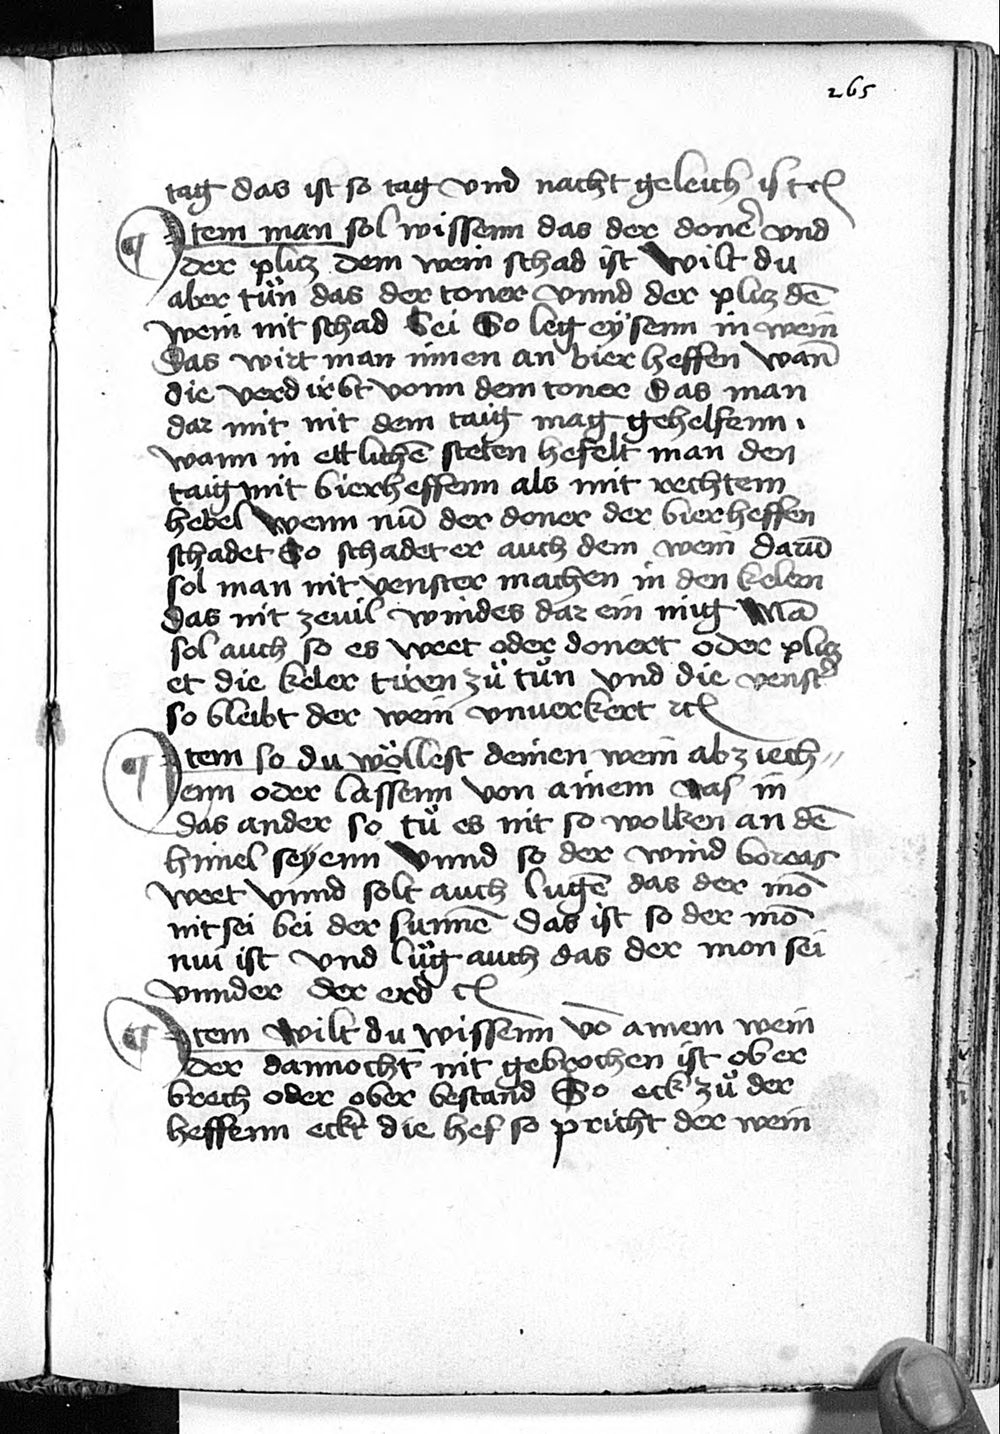 265
tag das ist so tag vnd nacht geleich ist rc
¶ Item man sol wissenn das der donē vnd
der plitz dem wein schad ist Wilt du
aber tůn das der toner vnnd der plitz dē
wein nit schad Sei So leg eÿsenn in wein
Das wirt man innen an bier heffen wan̄
die verdirbt vonn dem toner Das man
dar mit nit dem taig mag gehelfenn.
wann in ettlichē steten hefelt man den
taig mit bierheffenn als mit rechtem
hebel Wenn nū der doner der bierheffen
schadet So schadet er auch dem wein darū
sol man nit venster machen in den kelern
das nit zevil windes dar ein mug Mā
sol auch so es weet oder donert oder plitz
et die keler tiren zů tůn vnd die venst
so bleibt der wein vnuerkert rc
¶ Item so du wöllest deinen wein abziech〃
enn oder lassenn von ainem vas in
das ander so tů es nit so wolken an dē
himel seÿenn Vnnd so der wind boreas
weet Vnnd solt auch lugē das der mō
nit sei bei der sunnē Das ist so der mō
nui ist vnd lůg auch das der mon sei
vnnder der erd rc
¶ Item Wilt du wissenn vō ainem wein
der dannocht nit gebrochen ist ob er
brech oder ober bestand So eck zů der
heffenn eckt die hef so pricht der wein